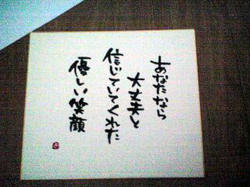 あなたなら
大丈夫と
信じていてくれた
優しい笑顔